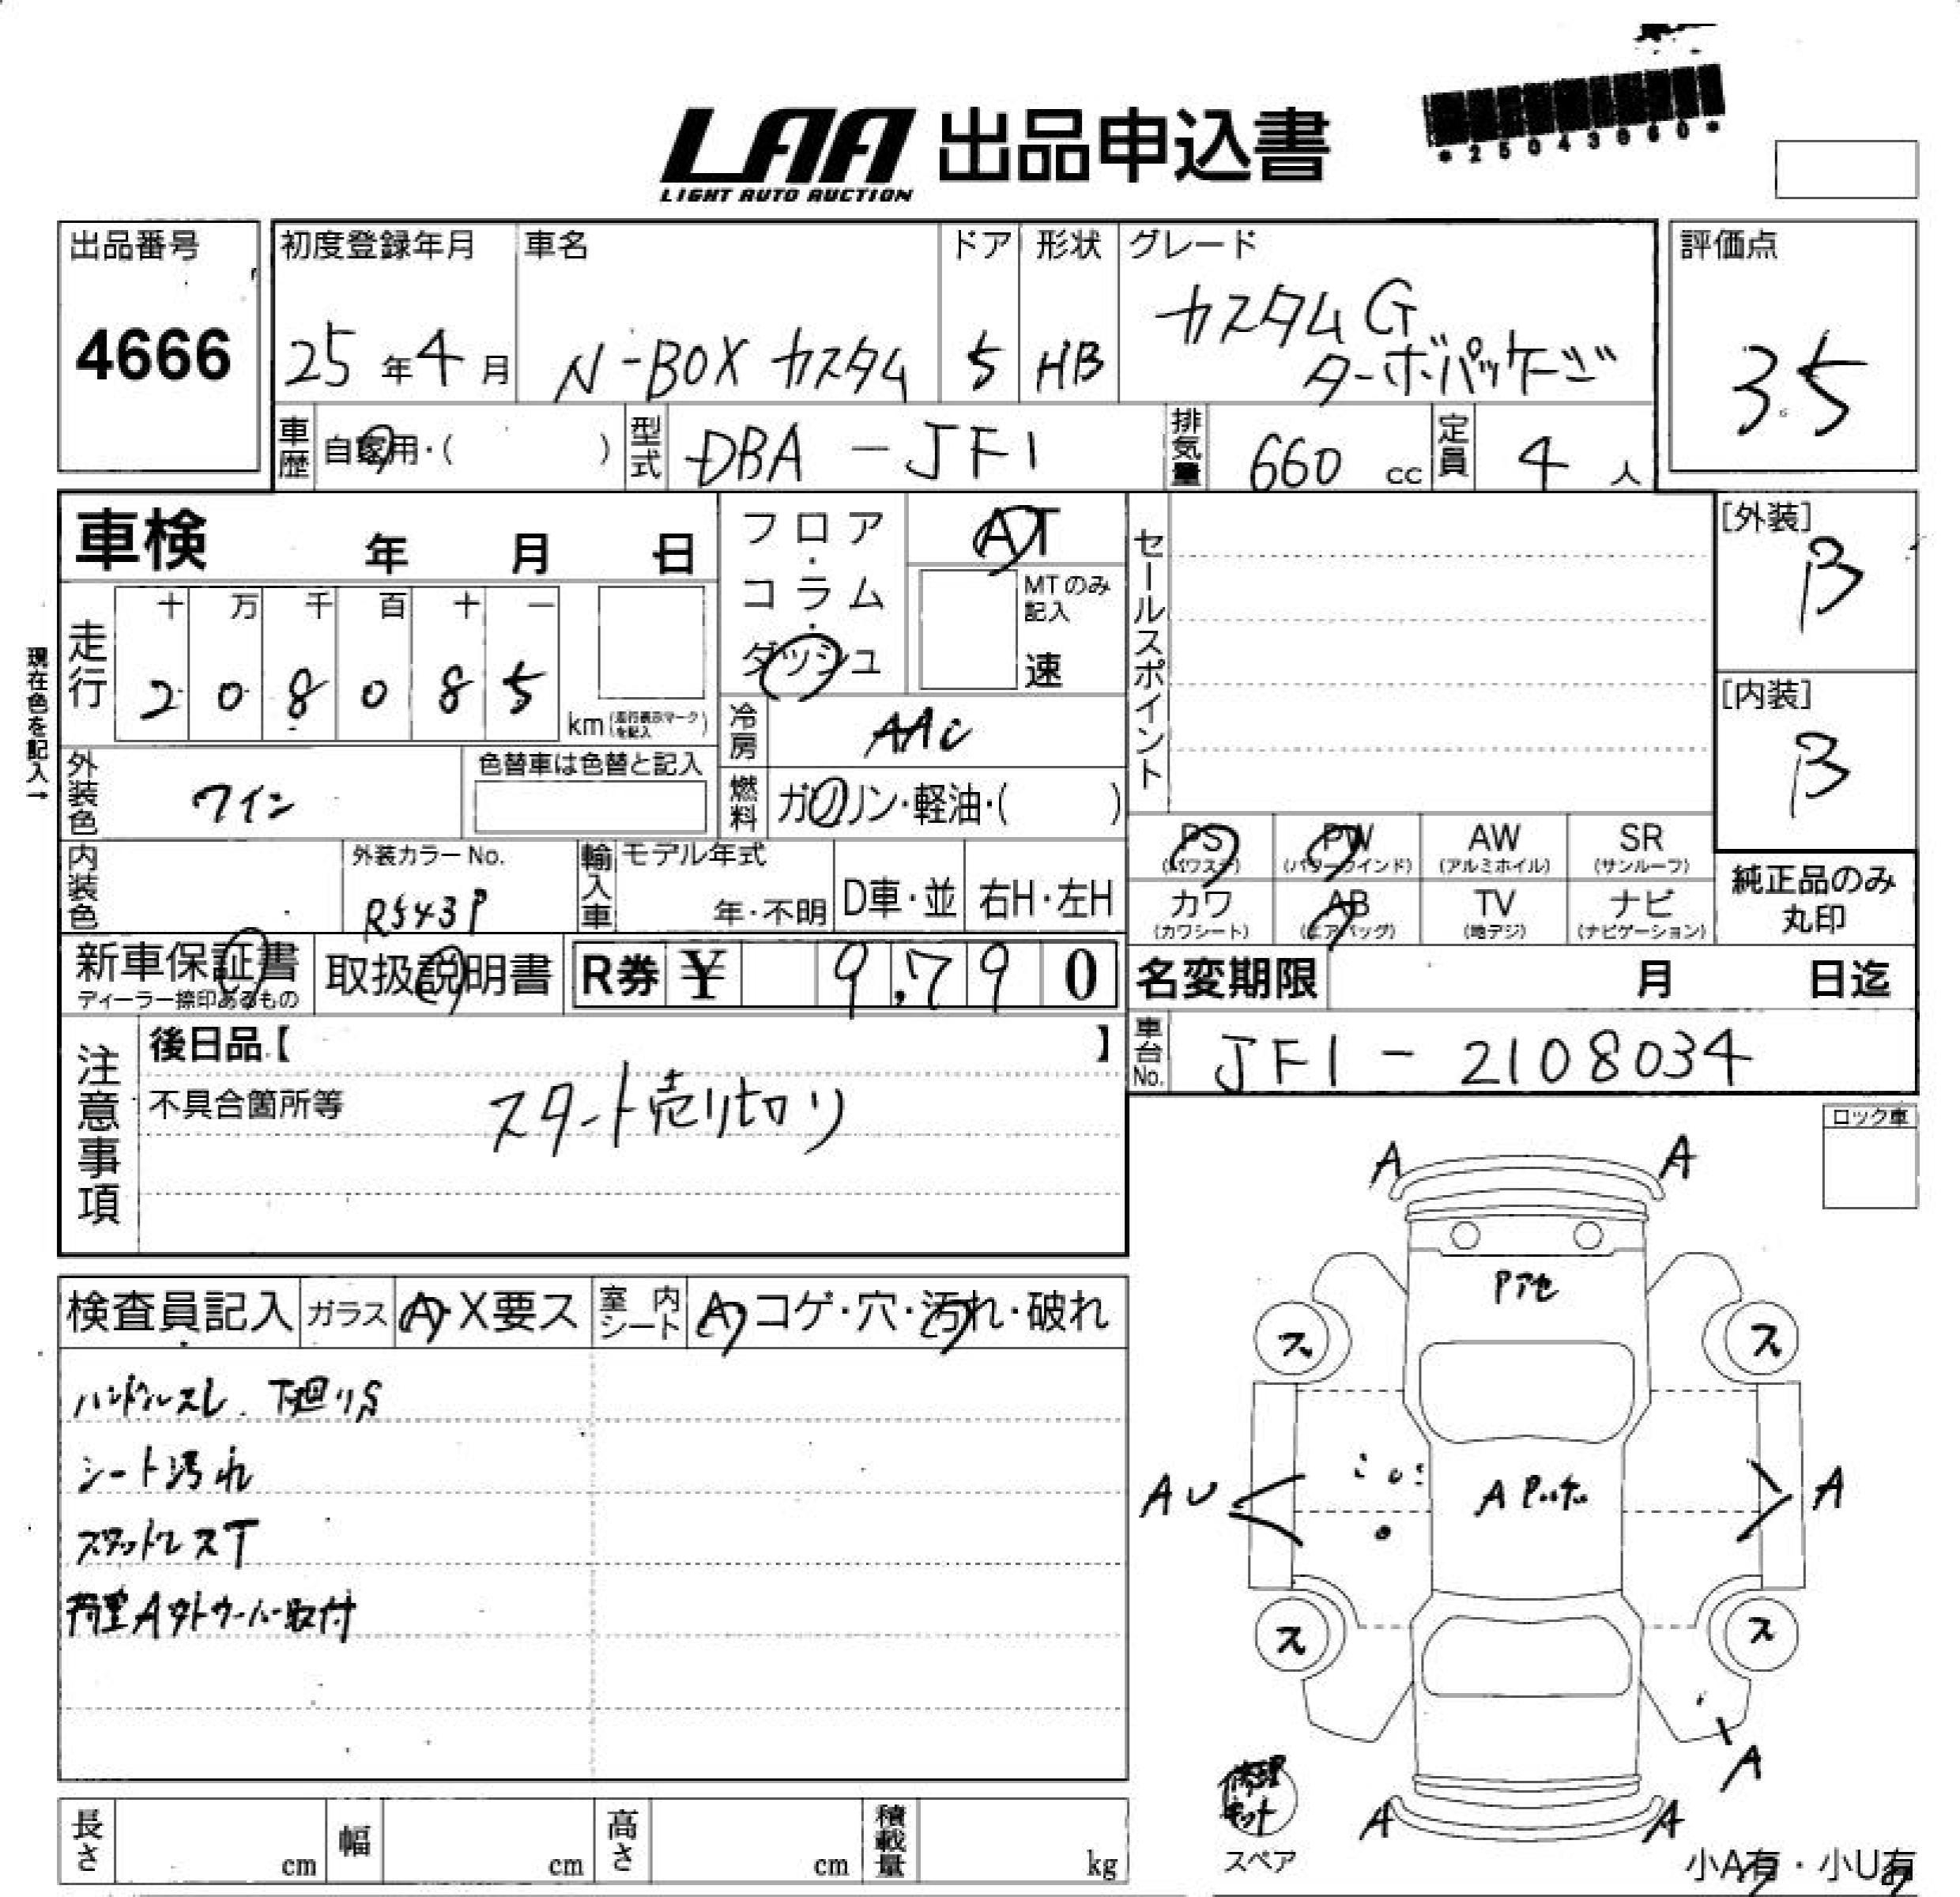 LAA 出品申込書
LIGHT AUTO AUCTION
*25043060*
出品番号
4666
初度登録年月
25年4月
車名
N-BOX カスタム
ドア
5
形状
HB
グレード
カスタムG
ターボパッケージ
評価点
3.5
車歴 自家用・( )
型式 DBA-JF1
排気量 660 cc
定員 4 人
車検 年 月 日
フロア・コラム・ダッシュ
AT
MTのみ記入
速
現在色を記入→
走行
十 万 千 百 十 一
2 0 8 0 8 5
km(走行表示マークを記入)
冷房 AAC
外装色 ワイン
色替車は色替と記入
燃料 ガソリン・軽油・( )
内装色
外装カラーNo.
R543P
輸入車
モデル年式
年・不明
D車・並
右H・左H
セールスポイント
[外装]
B
[内装]
B
PS
(パワステ)
PW
(パワーウインド)
AW
(アルミホイル)
SR
(サンルーフ)
カワ
(カワシート)
AB
(エアバッグ)
TV
(地デジ)
ナビ
(ナビゲーション)
純正品のみ
丸印
新車保証書
ディーラー捺印あるもの
取扱説明書
R券 ¥ 9,790
名変期限 月 日迄
車台No. JF1-2108034
注意事項
後日品【 】
不具合箇所等
スタート売り切り
ロック車
検査員記入
ガラス A・X要ス
室内シート A・コゲ・穴・汚れ・破れ
ハンドルスレ 下廻りS
シート汚れ
スタッドレスT
荷室Aタトゥーバー取付
A A
Pアセ
ス ス
AU
A
A
ス ス
A
A A
修理キット
スペア
小A有・小U有
長さ cm
幅 cm
高さ cm
積載量 kg